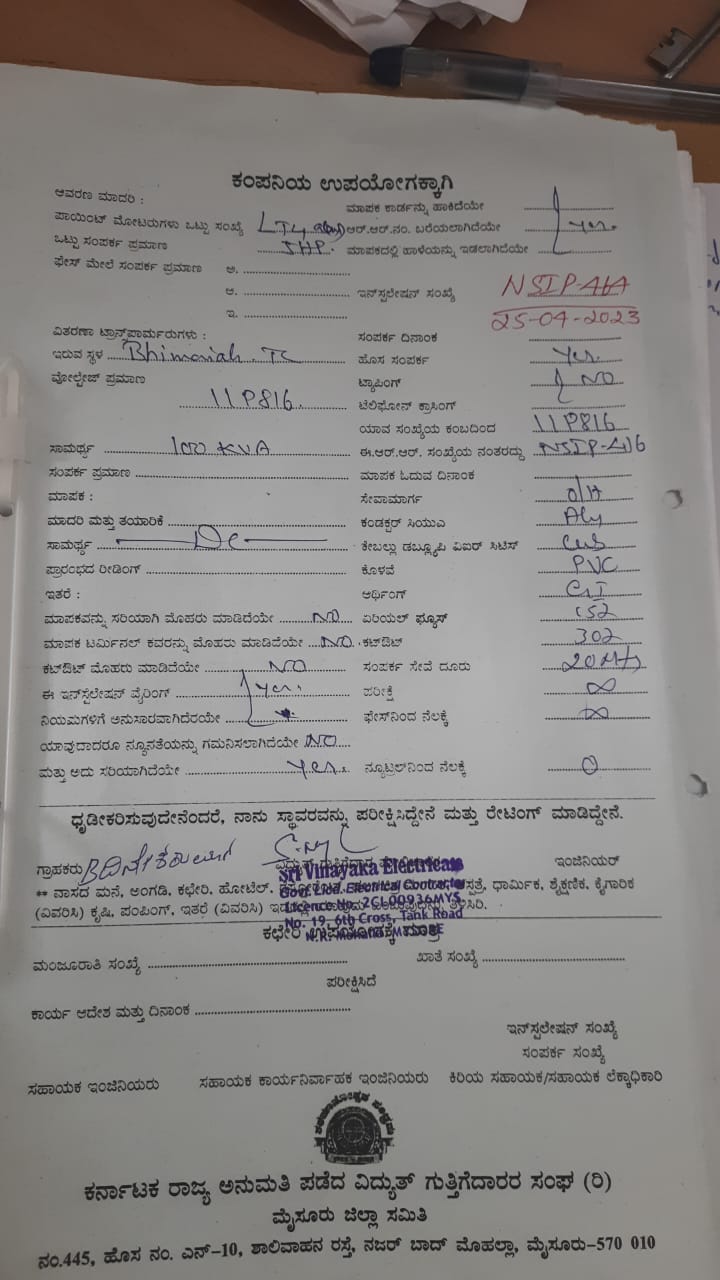 ಕಂಪನಿಯ ಉಪಯೋಗಕ್ಕಾಗಿ
ಆವರಣ ಮಾದರಿ : ಮಾಪಕ ಕಾರ್ಡನ್ನು ಹಾಕಿದೆಯೇ
ಪಾಯಿಂಟ್ ಮೋಟರುಗಳು ಒಟ್ಟು ಸಂಖ್ಯೆ LT4 ಆರ್.ಆರ್.ನಂ. ಬರೆಯಲಾಗಿದೆಯೇ yes.
ಒಟ್ಟು ಸಂಪರ್ಕ ಪ್ರಮಾಣ 5HP. ಮಾಪಕದಲ್ಲಿ ಹಾಳೆಯನ್ನು ಇಡಲಾಗಿದೆಯೇ
ಫೇಸ್ ಮೇಲೆ ಸಂಪರ್ಕ ಪ್ರಮಾಣ ಅ.
ಆ. ಇನ್‌ಸ್ಪಲೇಷನ್ ಸಂಖ್ಯೆ
ಇ. 25-04-2023
ವಿತರಣಾ ಟ್ರಾನ್ಸ್‌ಪಾರ್ಮರುಗಳು : ಸಂಪರ್ಕ ದಿನಾಂಕ
ಇರುವ ಸ್ಥಳ TC ಹೊಸ ಸಂಪರ್ಕ Yes.
ವೋಲ್ಟೇಜ್ ಪ್ರಮಾಣ ಟ್ಯಾಪಿಂಗ್ NO
11P816 ಟೆಲಿಫೋನ್ ಕ್ರಾಸಿಂಗ್
ಯಾವ ಸಂಖ್ಯೆಯ ಕಂಬದಿಂದ 11P816
ಸಾಮರ್ಥ್ಯ 100 KVA ಈ.ಆರ್.ಆರ್. ಸಂಖ್ಯೆಯ ನಂತರದ್ದು
ಸಂಪರ್ಕ ಪ್ರಮಾಣ ಮಾಪಕ ಓದುವ ದಿನಾಂಕ
ಮಾಪಕ : ಸೇವಾಮಾರ್ಗ O/H
ಮಾದರಿ ಮತ್ತು ತಯಾರಿಕೆ ಕಂಡಕ್ಟರ್ ಸಿಯುಎ Aly
ಸಾಮರ್ಥ್ಯ ಕೇಬಲ್ಲು ಡಬ್ಲ್ಯೂಪಿ ವಿಐರ್ ಸಿಟಿಸ್
ಪ್ರಾರಂಭದ ರೀಡಿಂಗ್ ಕೊಳವೆ PVC
ಇತರೆ : ಅರ್ಥಿಂಗ್ GI
ಮಾಪಕವನ್ನು ಸರಿಯಾಗಿ ಮೊಹರು ಮಾಡಿದೆಯೇ NO ಏರಿಯಲ್ ಫ್ಯೂಸ್ 152
ಮಾಪಕ ಟರ್ಮಿನಲ್ ಕವರನ್ನು ಮೊಹರು ಮಾಡಿದೆಯೇ NO ಕಟ್‌ಔಟ್ 302
ಕಟ್‌ಔಟ್ ಮೊಹರು ಮಾಡಿದೆಯೇ NO ಸಂಪರ್ಕ ಸೇವೆ ದೂರು
ಈ ಇನ್‌ಸ್ಪಲೇಷನ್ ವೈರಿಂಗ್ yes. ಪರೀಕ್ಷೆ ∞
ನಿಯಮಗಳಿಗೆ ಅನುಸಾರವಾಗಿದೆರಯೇ ಫೇಸ್‌ನಿಂದ ನೆಲಕ್ಕೆ ∞
ಯಾವುದಾದರೂ ನ್ಯೂನತೆಯನ್ನು ಗಮನಿಸಲಾಗಿದೆಯೇ NO
ಮತ್ತು ಅದು ಸರಿಯಾಗಿದೆಯೇ Yes. ನ್ಯೂಟ್ರಲ್‌ನಿಂದ ನೆಲಕ್ಕೆ 0
ಧೃಡೀಕರಿಸುವುದೇನೆಂದರೆ, ನಾನು ಸ್ಥಾವರವನ್ನು ಪರೀಕ್ಷಿಸಿದ್ದೇನೆ ಮತ್ತು ರೇಟಿಂಗ್ ಮಾಡಿದ್ದೇನೆ.
ಗ್ರಾಹಕರು ಇಂಜಿನಿಯರ್
Sri Vinayaka Electricals
Govt. Licd. Electrical Contractor
Licence No. 2CL00936MYS
No. 19, 6th Cross, Tank Road
** ವಾಸದ ಮನೆ, ಅಂಗಡಿ, ಕಛೇರಿ, ಹೋಟೆಲ್. ಧಾರ್ಮಿಕ, ಶೈಕ್ಷಣಿಕ, ಕೈಗಾರಿಕ
(ವಿವರಿಸಿ) ಕೃಷಿ, ಪಂಪಿಂಗ್, ಇತರೆ (ವಿವರಿಸಿ)
ಕಛೇರಿ ಉಪಯೋಗಕ್ಕೆ ಮಾತ್ರ
ಮಂಜೂರಾತಿ ಸಂಖ್ಯೆ ಖಾತೆ ಸಂಖ್ಯೆ
ಪರೀಕ್ಷಿಸಿದೆ
ಕಾರ್ಯ ಆದೇಶ ಮತ್ತು ದಿನಾಂಕ
ಇನ್‌ಸ್ಪಲೇಷನ್ ಸಂಖ್ಯೆ
ಸಂಪರ್ಕ ಸಂಖ್ಯೆ
ಸಹಾಯಕ ಇಂಜಿನಿಯರು ಸಹಾಯಕ ಕಾರ್ಯನಿರ್ವಾಹಕ ಇಂಜಿನಿಯರು ಕಿರಿಯ ಸಹಾಯಕ/ಸಹಾಯಕ ಲೆಕ್ಕಾಧಿಕಾರಿ
ಕರ್ನಾಟಕ ರಾಜ್ಯ ಅನುಮತಿ ಪಡೆದ ವಿದ್ಯುತ್ ಗುತ್ತಿಗೆದಾರರ ಸಂಘ (ರಿ)
ಮೈಸೂರು ಜಿಲ್ಲಾ ಸಮಿತಿ
ನಂ.445, ಹೊಸ ನಂ. ಎನ್-10, ಶಾಲಿವಾಹನ ರಸ್ತೆ, ನಜರ್ ಬಾದ್ ಮೊಹಲ್ಲಾ, ಮೈಸೂರು-570 010